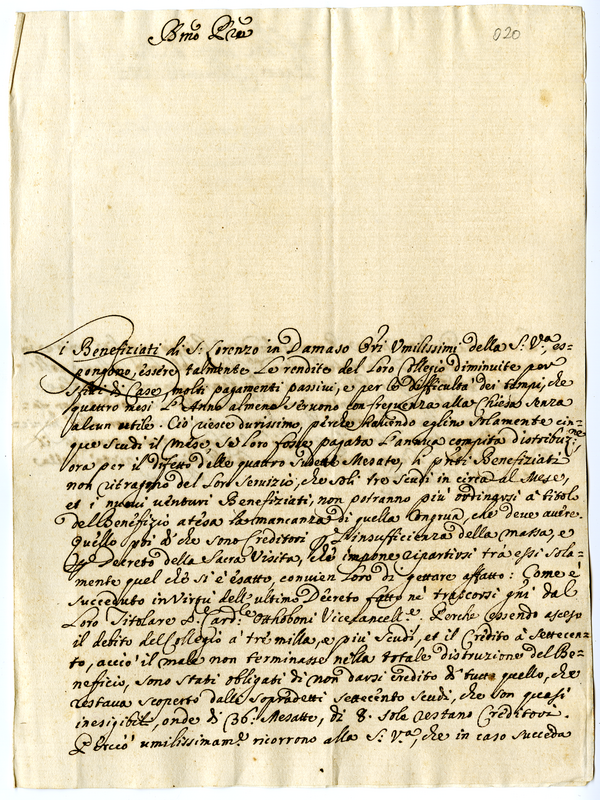 Bmo Pre
020
Li Benefiziati di S. Lorenzo in Damaso Ori Umilissimi della S. V.a, es-
pongono, essere talmente le rendite del loro Collegio diminuite per
sfitti di Case, molti pagamenti passivi, e per le difficoltà dei tempi, che
quattro mesi l'Anno almeno servono con frequenza alla Chiesa senza
alcun utile. Ciò riesce durissimo, perche havendo eglino solamente cin-
que scudi il mese, se loro fosse pagata l'annua compita distribuz.ne
ora per il difetto delle quattro Mesate, li pnti Benefiziati
non ritragono del loro Servizio, che soli tre scudi in circa al Mese,
et i nuovi venturi Benefiziati, non potranno più ordinarsi à titolo
del Benefizio atesa la mancanza di quella Congrua, che deve avere.
Quello poi di che sono Creditori p l'insufficienza della massa, e
p Decreto della Sacra Visita, che impone ripartirsi trà essi sola-
mente quel che si è esatto, convien loro di gettare affatto: Come è
succeduto in virtù dell'ultimo Decreto fatto ne' trascorsi gni dal
Loro Titolare S.r Card.le Otthoboni Vicecancell.e. Perche essendo asceso
il debito del Collegio à tre milla, e più scudi, et il Credito à settecen-
to, acciò il male non terminasse nella totale distruzione del Be-
neficio, sono stati obligati di non darsi credito di tutto quello, che
restava scoperto dalli sopradetti settecento scudi, che son quasi
inesigibili, onde di 36. Mesatte, di 8. sole restano Creditori.
Perciò umilissimam.e ricorrono alla S. V.a, che in caso succeda